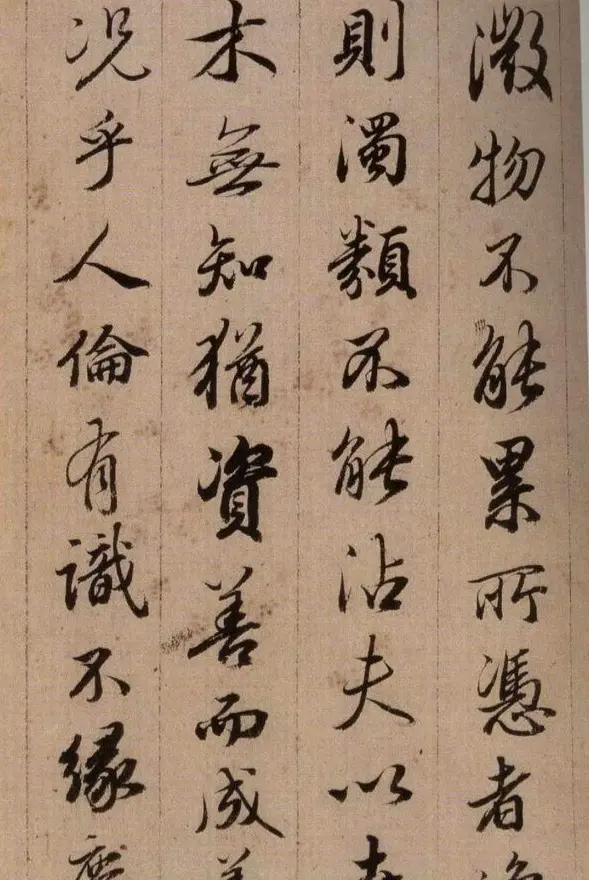 微物不能累所憑者
則濁類不能沾夫以
木無知猶資善而成
况乎人倫有識不緣